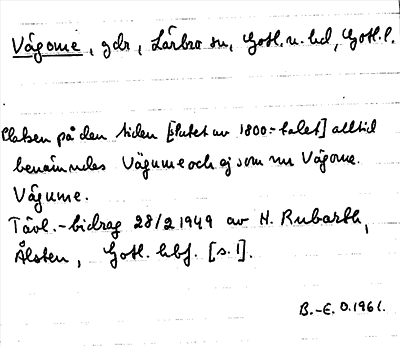 Vågome, gdr, Lärbro sn, Gotl. n. hd, Gotl. l.
Platsen på den tiden [slutet av 1800-talet] alltid
benämndes Vägume och ej som nu Vågome.
Vågume.
Tävl.-bidrag 28/2 1949 av H. Rubarth,
Ålsten, Gotl. hbf. [s. 1].
B.-E. O. 1961.